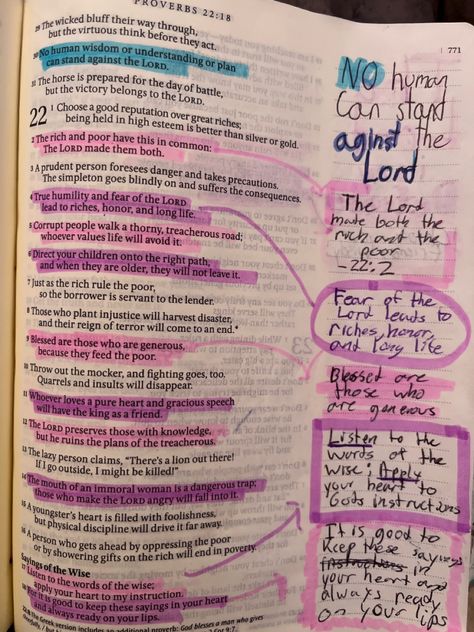 PROVERBS 22:18
771
29 The wicked bluff their way through,
but the virtuous think before they act.
30 No human wisdom or understanding or plan
can stand against the LORD.
31 The horse is prepared for the day of battle,
but the victory belongs to the LORD.
22 1 Choose a good reputation over great riches;
being held in high esteem is better than silver or gold.
2 The rich and poor have this in common:
The LORD made them both.
3 A prudent person foresees danger and takes precautions.
The simpleton goes blindly on and suffers the consequences.
4 True humility and fear of the LORD
lead to riches, honor, and long life.
5 Corrupt people walk a thorny, treacherous road;
whoever values life will avoid it.
6 Direct your children onto the right path,
and when they are older, they will not leave it.
7 Just as the rich rule the poor,
so the borrower is servant to the lender.
8 Those who plant injustice will harvest disaster,
and their reign of terror will come to an end.*
9 Blessed are those who are generous,
because they feed the poor.
10 Throw out the mocker, and fighting goes, too.
Quarrels and insults will disappear.
11 Whoever loves a pure heart and gracious speech
will have the king as a friend.
12 The LORD preserves those with knowledge,
but he ruins the plans of the treacherous.
13 The lazy person claims, “There’s a lion out there!
If I go outside, I might be killed!”
14 The mouth of an immoral woman is a dangerous trap;
those who make the LORD angry will fall into it.
15 A youngster’s heart is filled with foolishness,
but physical discipline will drive it far away.
16 A person who gets ahead by oppressing the poor
or by showering gifts on the rich will end in poverty.
Sayings of the Wise
17 Listen to the words of the wise;
apply your heart to my instruction.
18 For it is good to keep these sayings in your heart
and always ready on your lips.
the Greek version includes an additional proverb: God blesses a man who gives
NO human
can stand
aginst the
Lord
The Lord
made both the
rich and the
poor
-22:2
Fear of the
Lord leads to
riches, honor,
and long life
Blessed are
those who
are generous
Listen to the
words of the
wise; Apply
your heart to
Gods instructions
It is good to
keep these sayings
instructions in
your heart and
always ready
on your lips